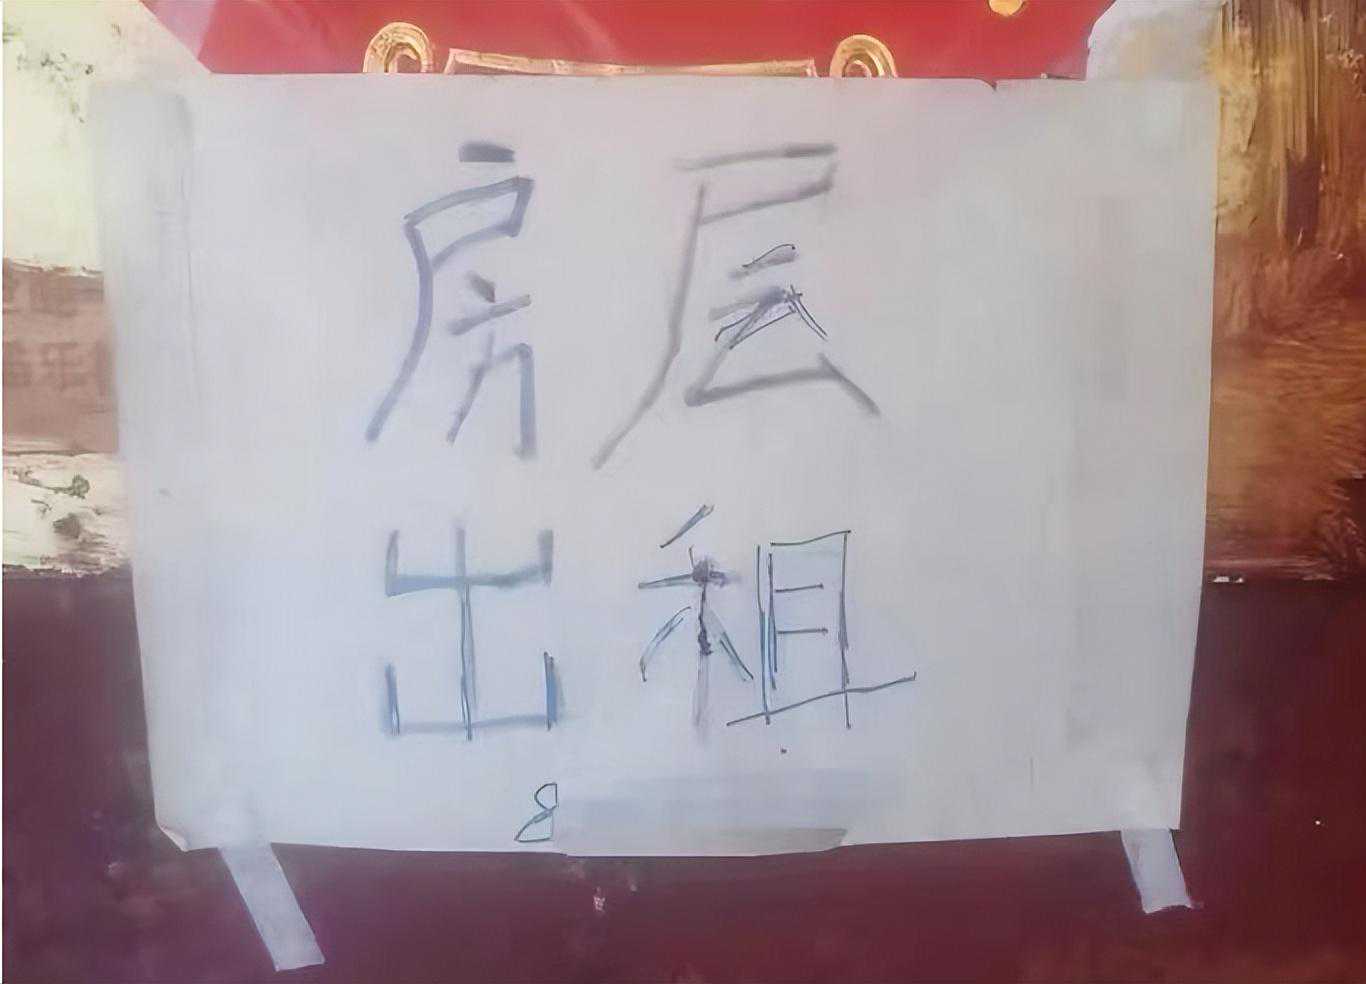 房层
出租
8